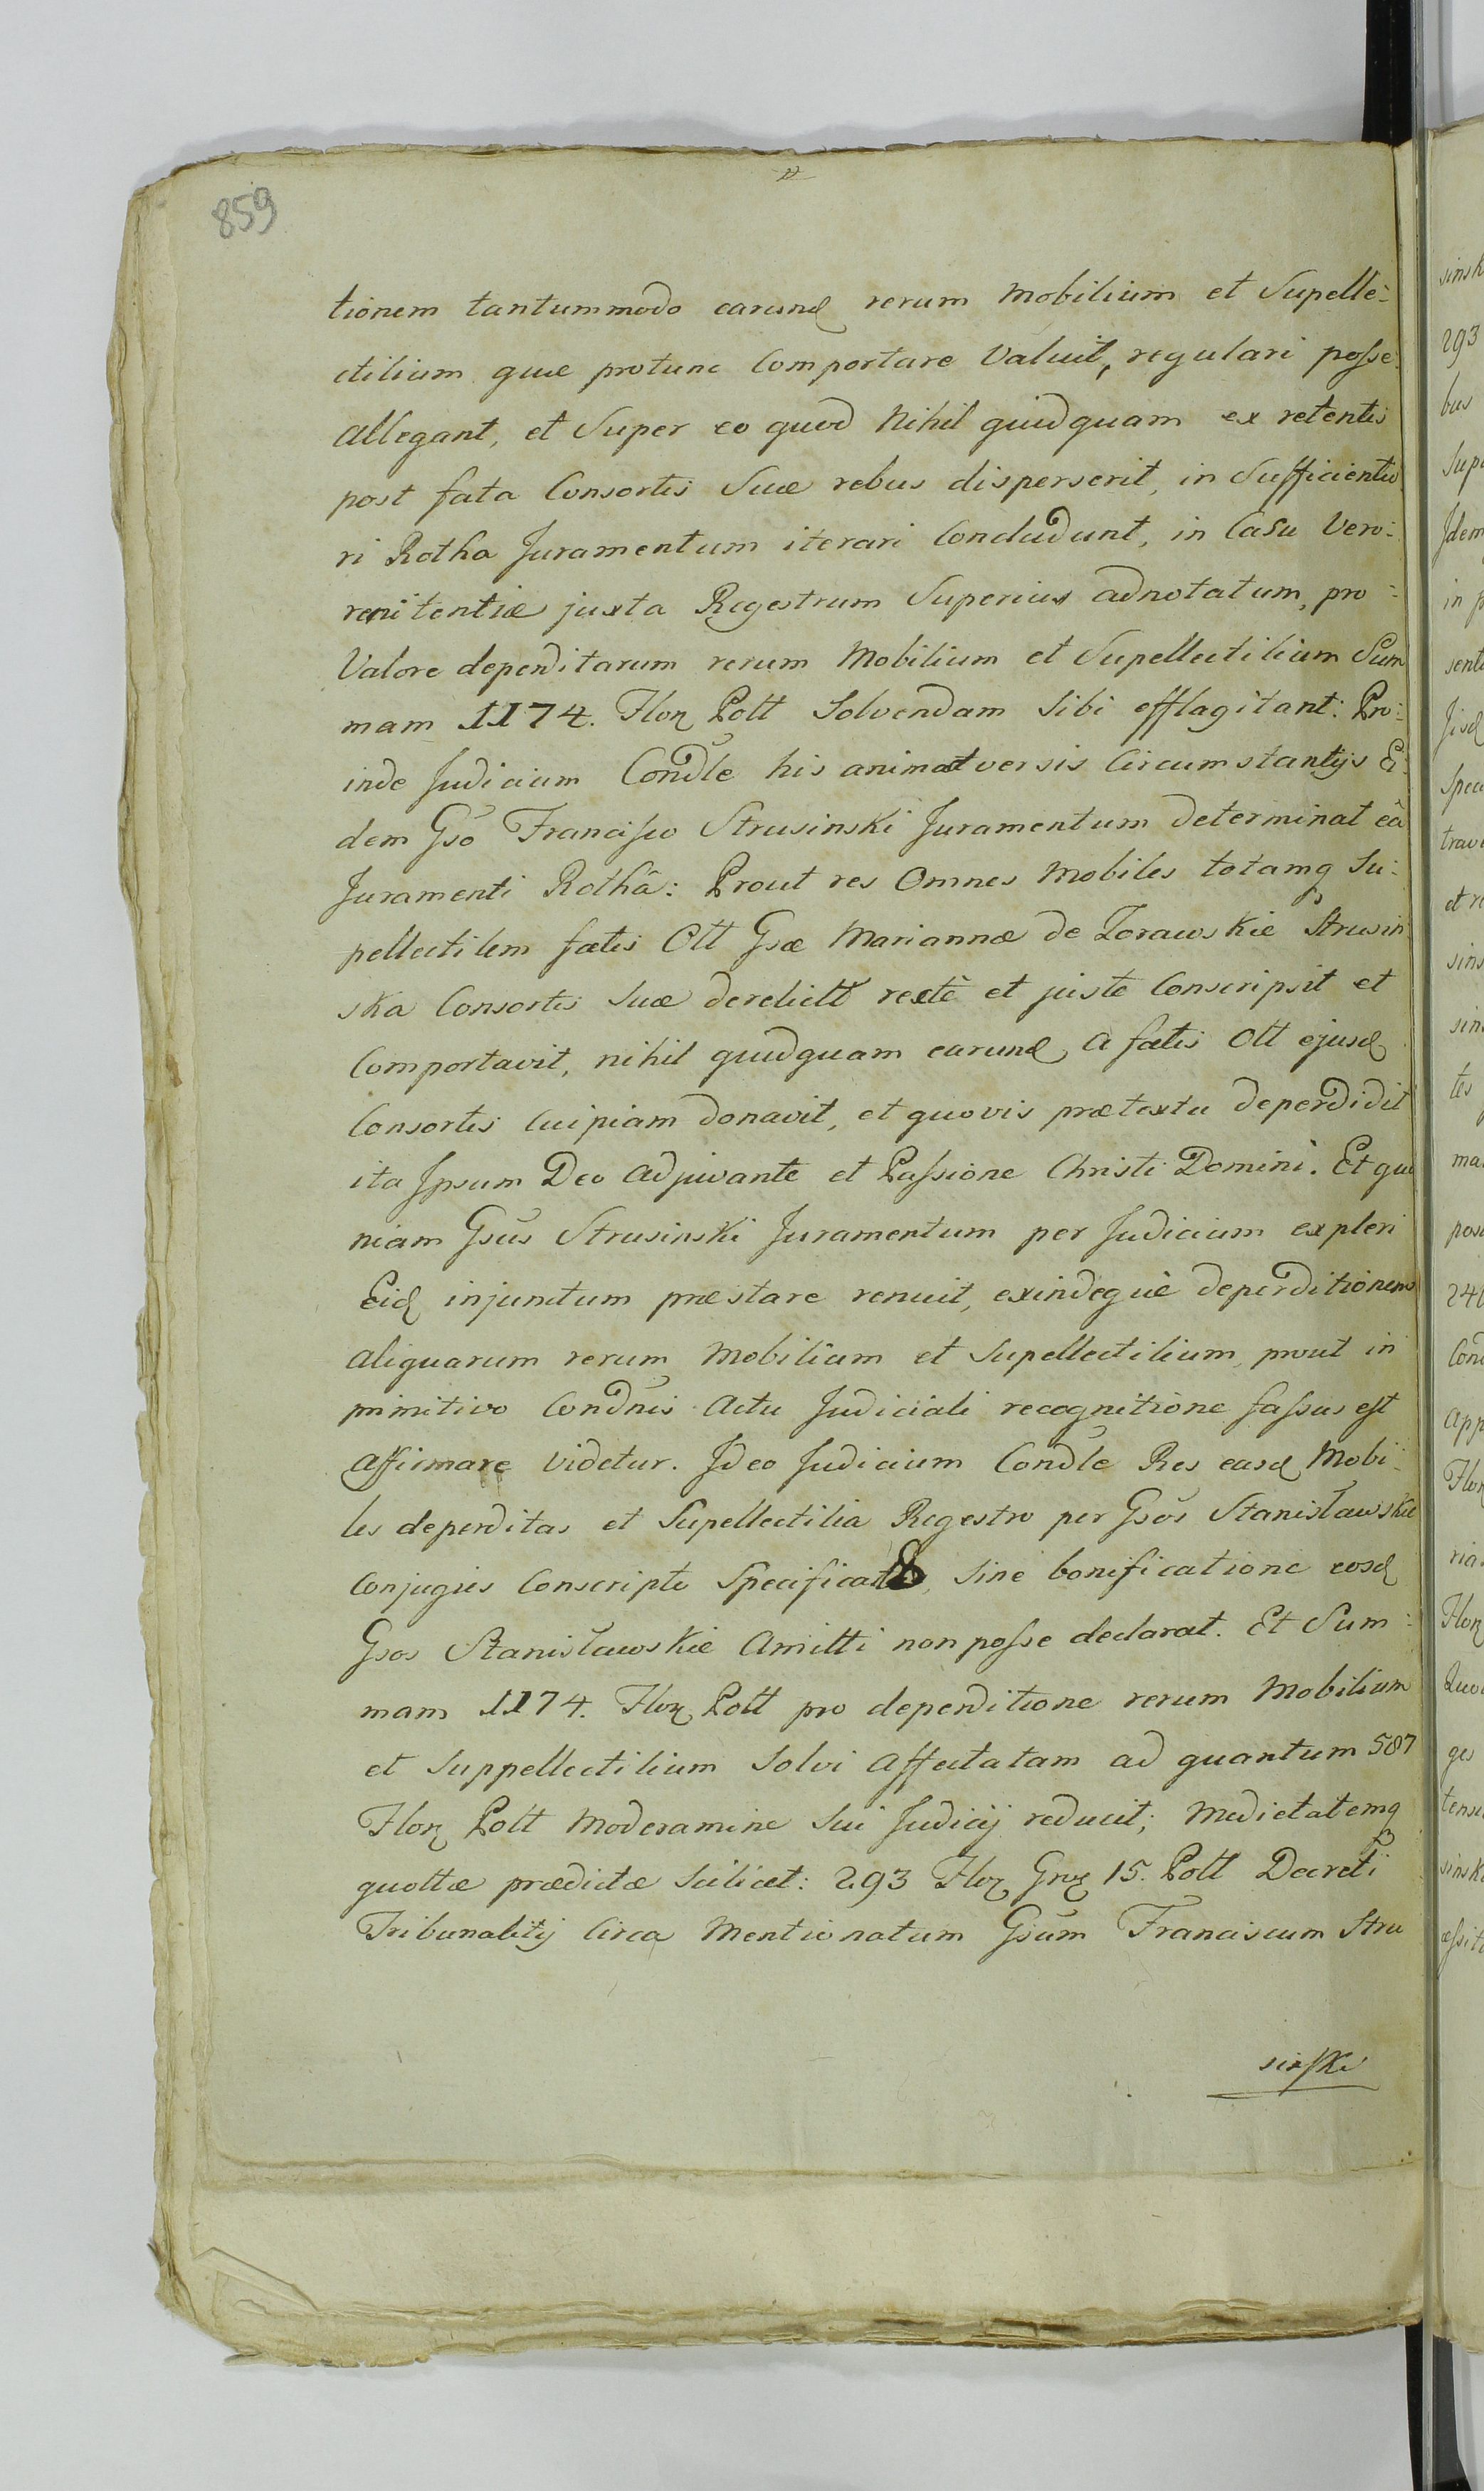 859
tionem tantummodo earund rerum Mobilium et Supelle-
ctilium quæ protunc Comportare Valuit, regulari posse
allegant, et Super eo quod Nihil quidquam ex retentis
post fata Consortis Suæ rebus disperserit, in Sufficientio
ri Rotha Juramentum iterari Concludunt, in Casu Vero:
renitentiæ juxta Regestrum Superius adnotatum, pro:
Valore deperditarum rerum Mobilium et Supellectilium Sum
mam 1174. Flor Poll Solvendam Sibi efflagitant: Pro:
inde Judicium Condle his animatversis Circumstantijs Ei:
dem Gso Francisco Strusinski Juramentum determinat eâ
Juramenti Rothâ: Prout res Omnes Mobiles totamq Su:
pellectilem fatis Oll Gsæ Mariannæ de Zorawskie Strusin
ska Consortis Suæ derelictt rectè et juste Conscripsit et
Comportavit, nihil quidquam earund a fatis Oll ejusd
Consortis Cuipiam donavit, et quovis prætextu deperdidit
ita Ipsum Deo adjuvante et Passione Christi Domini. Et quo
niam Gsus Strusinski Juramentum per Judicium expleri
Eid injunctum præstare renuit, exindeque deperditionem
aliquarum rerum Mobilium et Supellectilium, prout in
primitivo Condnis Actu Judiciali recognitione fassus est
affirmare Videtur. Ideo Judicium Condle Res easd Mobi:
les deperditas et Supellectilia Regestro per Gsos Stanisławskie
Conjuges Conscripto Specificat, Sine bonificatione eosd
Gsos Stanisławskie Amitti non posse declarat. Et Sum:
mam 1174. Flor Poll pro deperditione rerum Mobilium
et Suppellectilium Solvi Affectatam ad quantum 587
Flor Poll Moderamine Sui Judicij reducit; Medietatemq
quottæ prædictæ Scilicet: 293 Flor Gros 15. Poll Decreti
Tribunalitij Circa Mentionatum Gsum Franciscum Stru
sinski